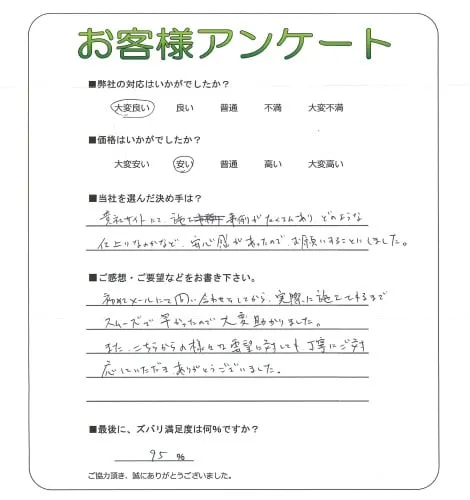 お客様アンケート
■弊社の対応はいかがでしたか？
大変良い 良い 普通 不満 大変不満
■価格はいかがでしたか？
大変安い 安い 普通 高い 大変高い
■当社を選んだ決め手は？
貴社サイトにて、施工事例がたくさんあり どのような
仕上りなのかなど、安心感があったので、お願いすることにしました。
■ご感想・ご要望などをお書き下さい。
初めてメールにて問い合わせをしてから、実際に施工するまで
スムーズで早かったので大変助かりました。
また、こちらからの様々な要望に対しても丁寧にご対
応していただき ありがとうございました。
■最後に、ズバリ満足度は何％ですか？
95 %
ご協力頂き、誠にありがとうございました。